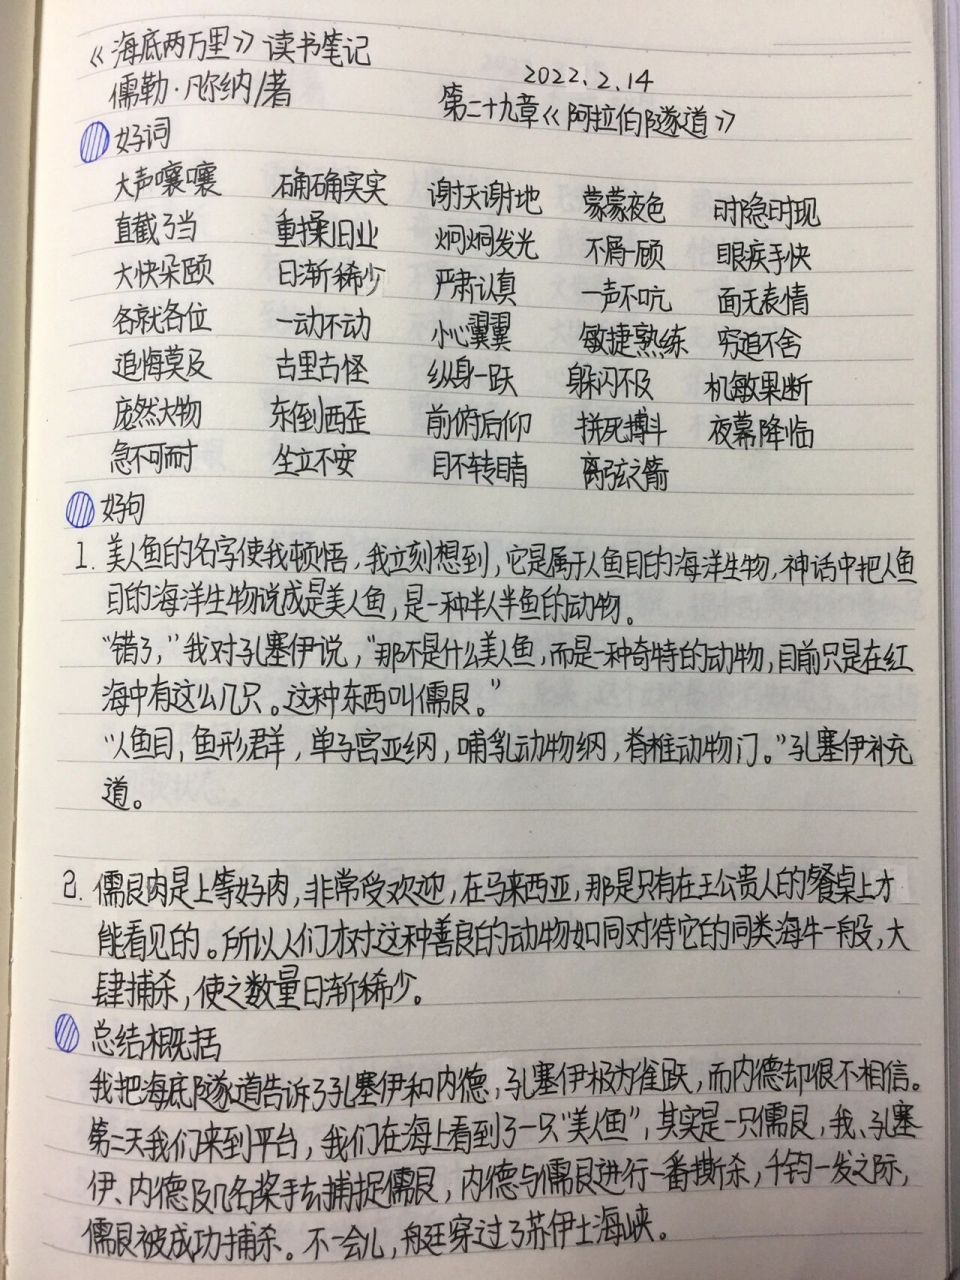 《海底两万里》读书笔记
儒勒·凡尔纳/著
2022.2.14
第二十九章《阿拉伯隧道》
好词
大声嚷嚷 确确实实 谢天谢地 蒙蒙夜色 时隐时现
直截了当 重操旧业 炯炯发光 不屑一顾 眼疾手快
大快朵颐 日渐稀少 严肃认真 一声不吭 面无表情
各就各位 一动不动 小心翼翼 敏捷熟练 穷追不舍
追悔莫及 古里古怪 纵身一跃 躲闪不及 机敏果断
庞然大物 东倒西歪 前俯后仰 拼死搏斗 夜幕降临
急不可耐 坐立不安 目不转睛 离弦之箭
好句
1. 美人鱼的名字使我顿悟，我立刻想到，它是属于人鱼目的海洋生物，神话中把人鱼
目的海洋生物说成是美人鱼，是一种半人半鱼的动物。
“错了，”我对孔塞伊说，“那不是什么美人鱼，而是一种奇特的动物，目前只是在红
海中有这么几只。这种东西叫儒艮。”
“人鱼目，鱼形君羊，单子宫亚纲，哺乳动物纲，脊椎动物门。”孔塞伊补充
道。
2. 儒艮肉是上等好肉，非常受欢迎，在马来西亚，那是只有在王公贵人的餐桌上才
能看见的。所以人们才对这种善良的动物如同对待它的同类海牛一般，大
肆捕杀，使之数量日渐稀少。
总结概括
我把海底隧道告诉了孔塞伊和内德，孔塞伊极为雀跃，而内德却很不相信。
第二天我们来到平台，我们在海上看到了一只“美人鱼”，其实是一只儒艮，我、孔塞
伊、内德及几名桨手去捕捉儒艮，内德与儒艮进行一番撕杀，千钧一发之际，
儒艮被成功捕杀。不一会儿，舟廷穿过了苏伊士海峡。